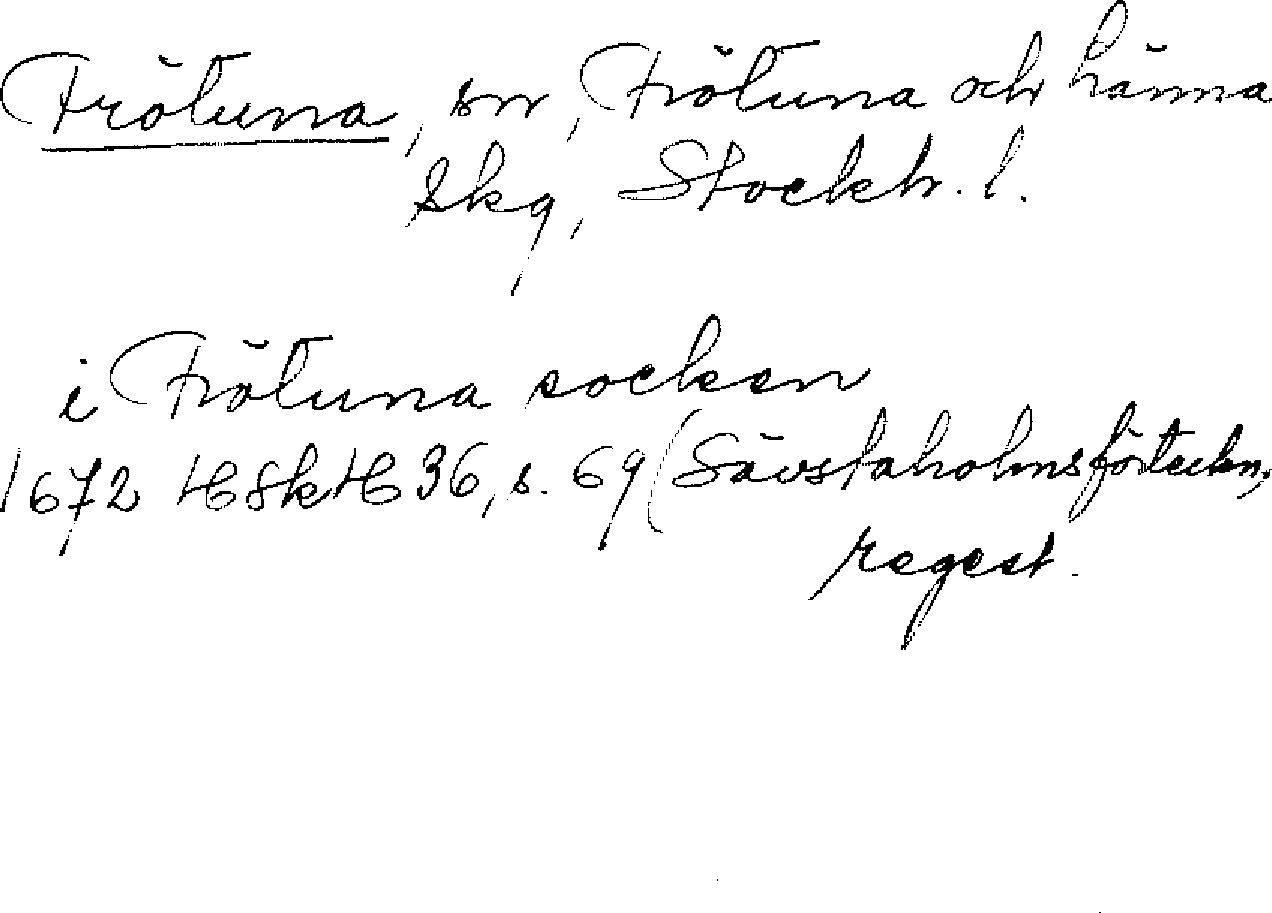 Frötuna, sn, Frötuna och Länna
skg, Stockh. l.
i Frötuna socken
1672 HSkH 36, s. 69 (Sävstaholmsförteckn,
regest.